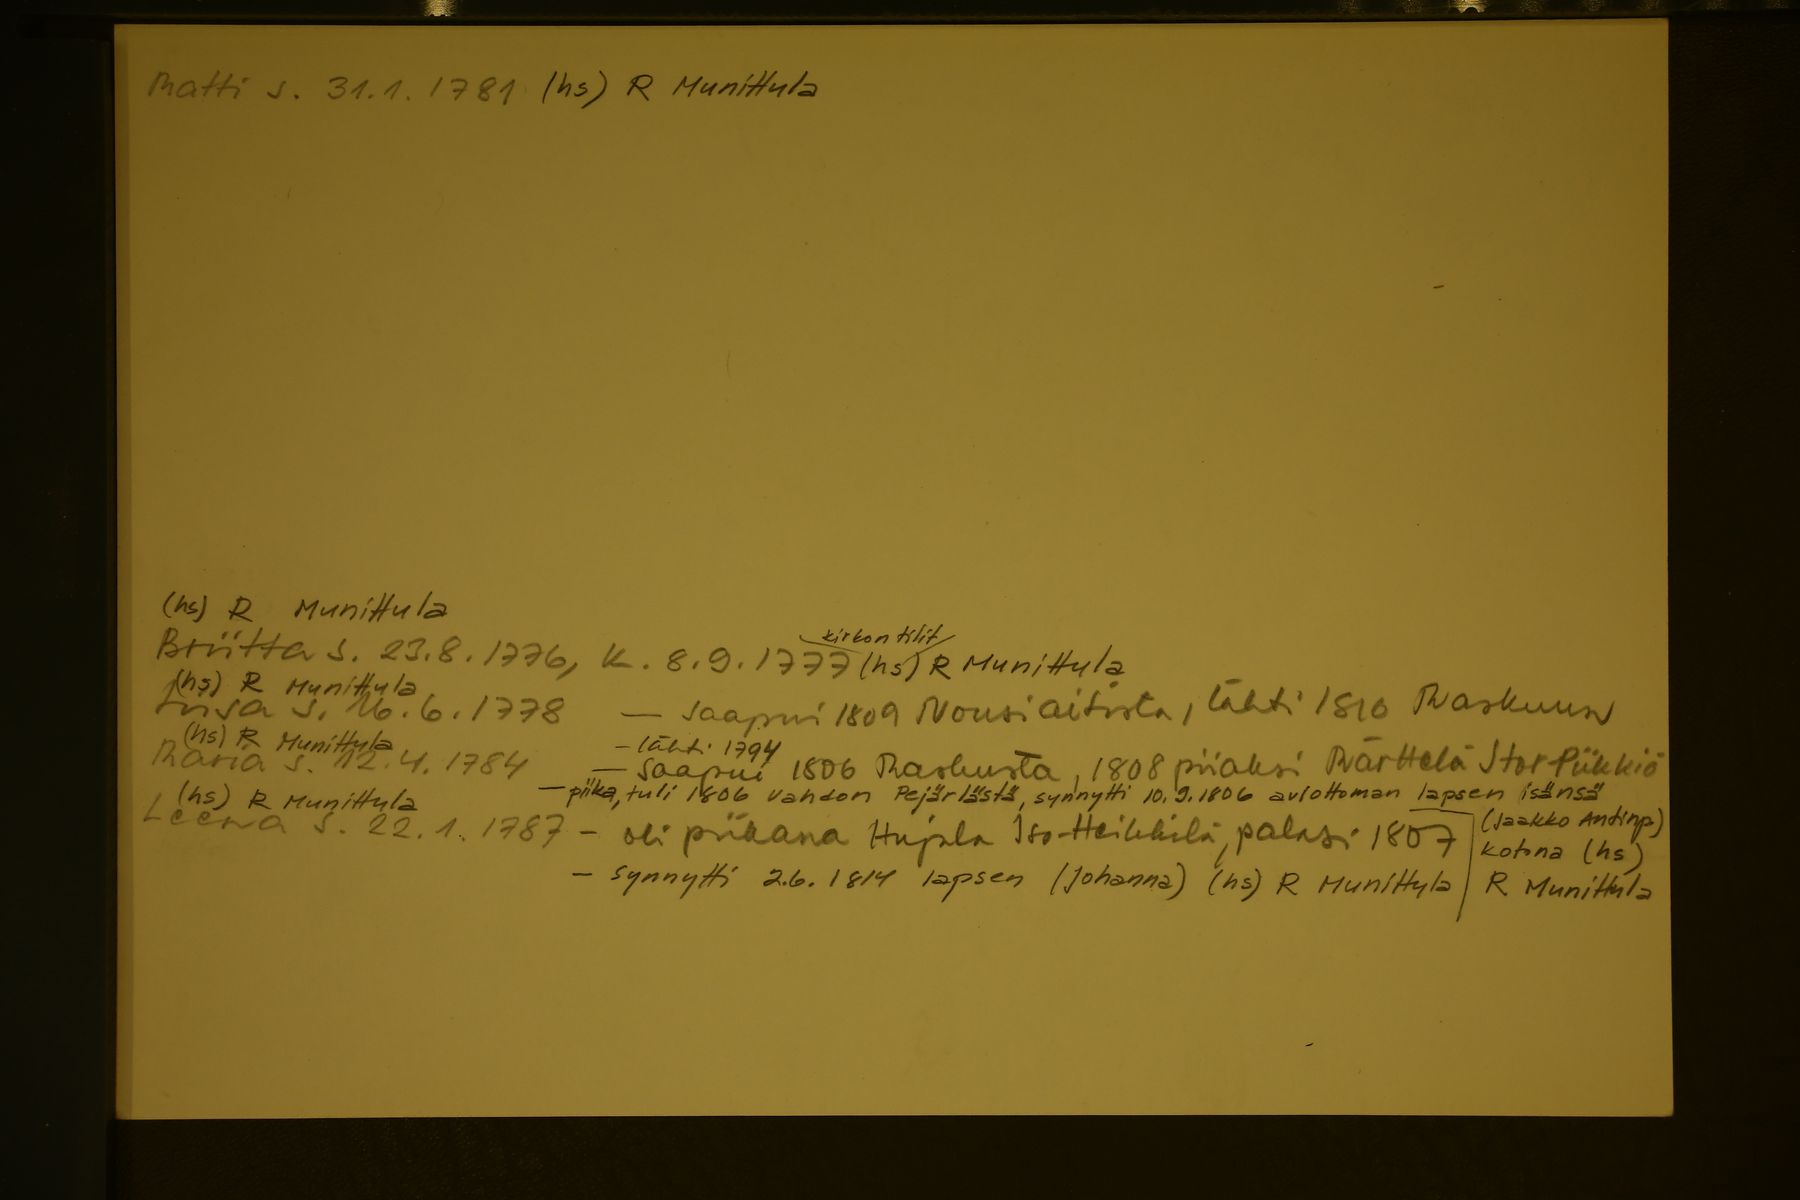 Matti s. 31.1.1781 (hs) R Munittula
(hs) R Munittula
kirkon tilit
Briitta s. 23.8.1776, k. 8.9.1777 (hs) R Munittula
(hs) R Munittula
Liisa s. 16.6.1778 — saapui 1809 Nousiaisista, lähti 1810 Maskuun
(hs) R Munittula — lähti 1794
Maria s. 12.4.1784 — saapui 1806 Maskusta, 1808 piiaksi Märttelä Stor-Piikkiö
(hs) R Munittula — piika, tuli 1806 Vahdon Pejärlästä, synnytti 10.9.1806 aviottoman lapsen isänsä
(Jaakko Antinp)
Leena s. 22.1.1787 — oli piikana Hujala Iso-Heikkilä, palasi 1807
kotona (hs)
— synnytti 2.6.1814 lapsen (Johanna) (hs) R Munittula
R Munittula